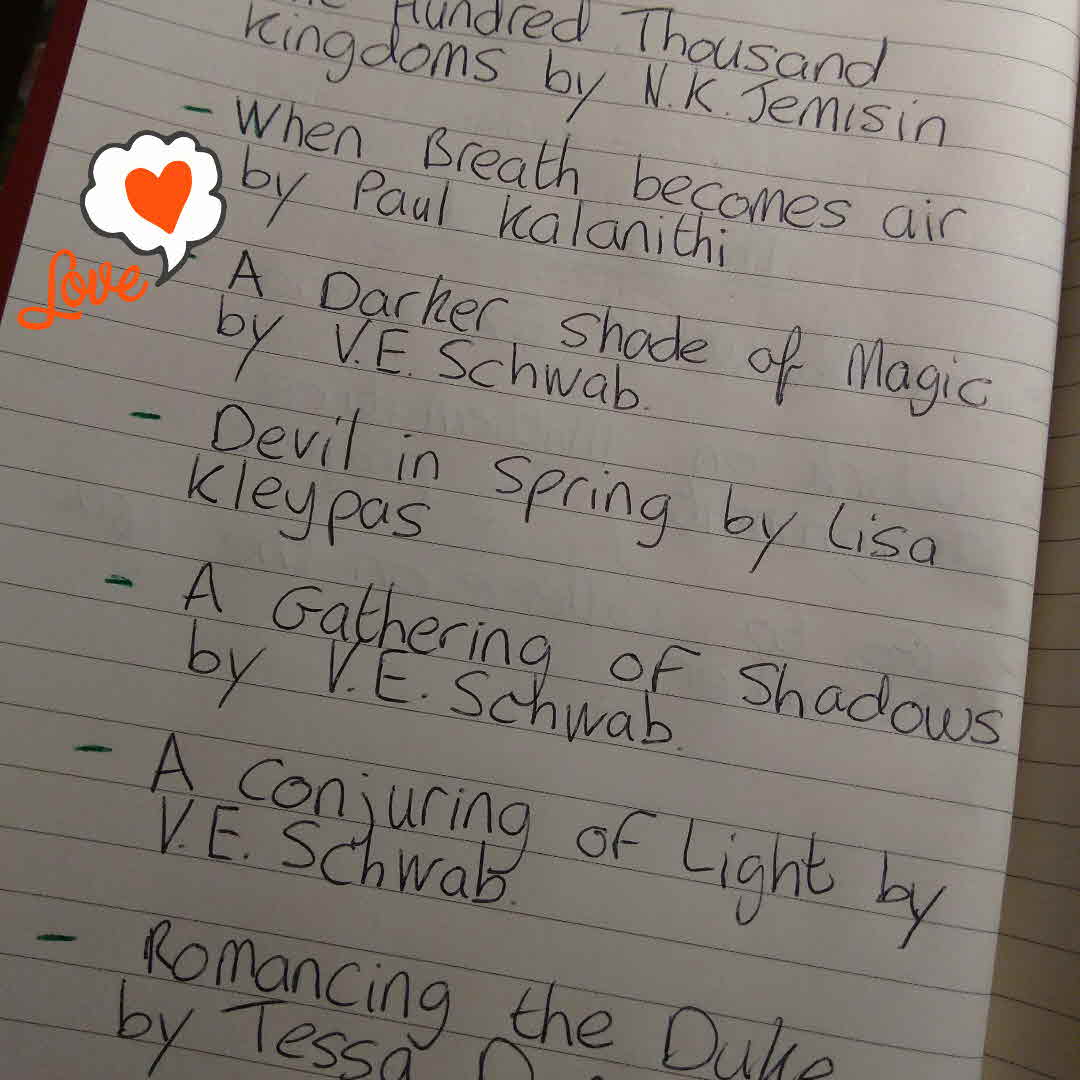 Hundred Thousand
Kingdoms by N.K. Jemisin
- When Breath becomes air
by Paul Kalanithi
Love
- A Darker Shade of Magic
by V.E. Schwab.
- Devil in Spring by Lisa
Kleypas
- A Gathering of Shadows
by V.E. Schwab.
- A Conjuring of Light by
V.E. Schwab.
- Romancing the Duke
by Tessa